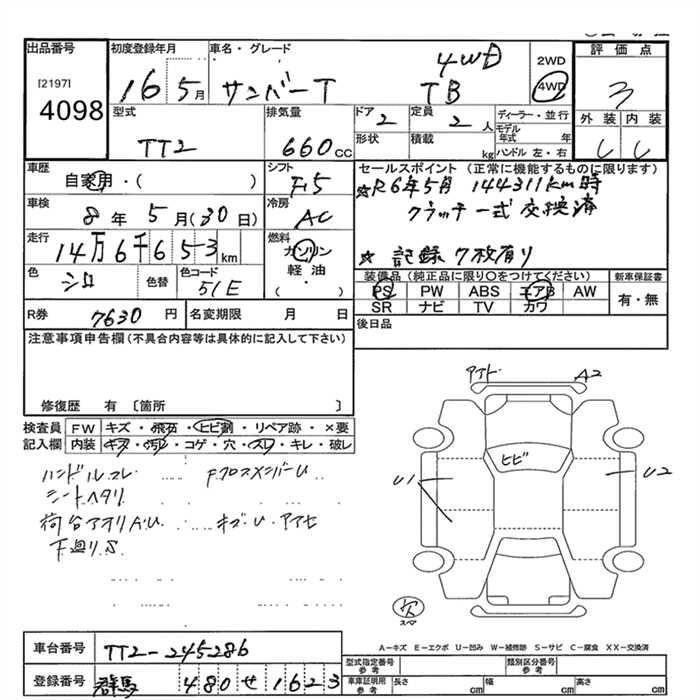 出品番号 初度登録年月 車名・グレード 2WD 評価点
[2197] 4098 16 5月 サンバーT 4WD TB 4WD 3
型式 排気量 ドア 定員 ディーラー・並行 外装 内装
TT2 660cc 2 2人 モデル年式 年
形状 積載 kg ハンドル 左・右
車歴 シフト セールスポイント (正常に機能するものに限ります)
自家用・( ) F5 ☆R6年5月 144311km時
車検 8年5月(30日) 冷房 AC クラッチ一式 交換済
走行 14万6千653km 燃料 ガソリン ☆ 記録7枚有り
色 シロ 色替 色コード 51E 軽油 ・ ( )
装備品(純正品に限り○をつけてください) 新車保証書
PS PW ABS エアB AW 有・無
SR ナビ TV カワ
R券 7630円 名変期限 月 日 後日品
注意事項申告欄(不具合内容等は具体的に記入して下さい)
修復歴 有 [箇所 ]
検査員 FW キズ・飛石・ヒビ割・リペア跡・×要
記入欄 内装 キズ・汚れ・コゲ・穴・スレ・キレ・破レ
アンド A2
ヒビ
U1 U2
ハンドルスレ FクロスメンバーU
シートヘタリ
荷台アオリAU キズ・U・アアセ
下廻りS
欠
スペア
A-キズ E-エクボ U-凹み W-補修跡 S-サビ C-腐食 XX-交換済
車台番号 TT2-245286
型式指定番号 参考 類別区分番号 参考
登録番号 群馬 480 せ 1623
車庫証明用 参考 長さ cm 幅 cm 高さ cm